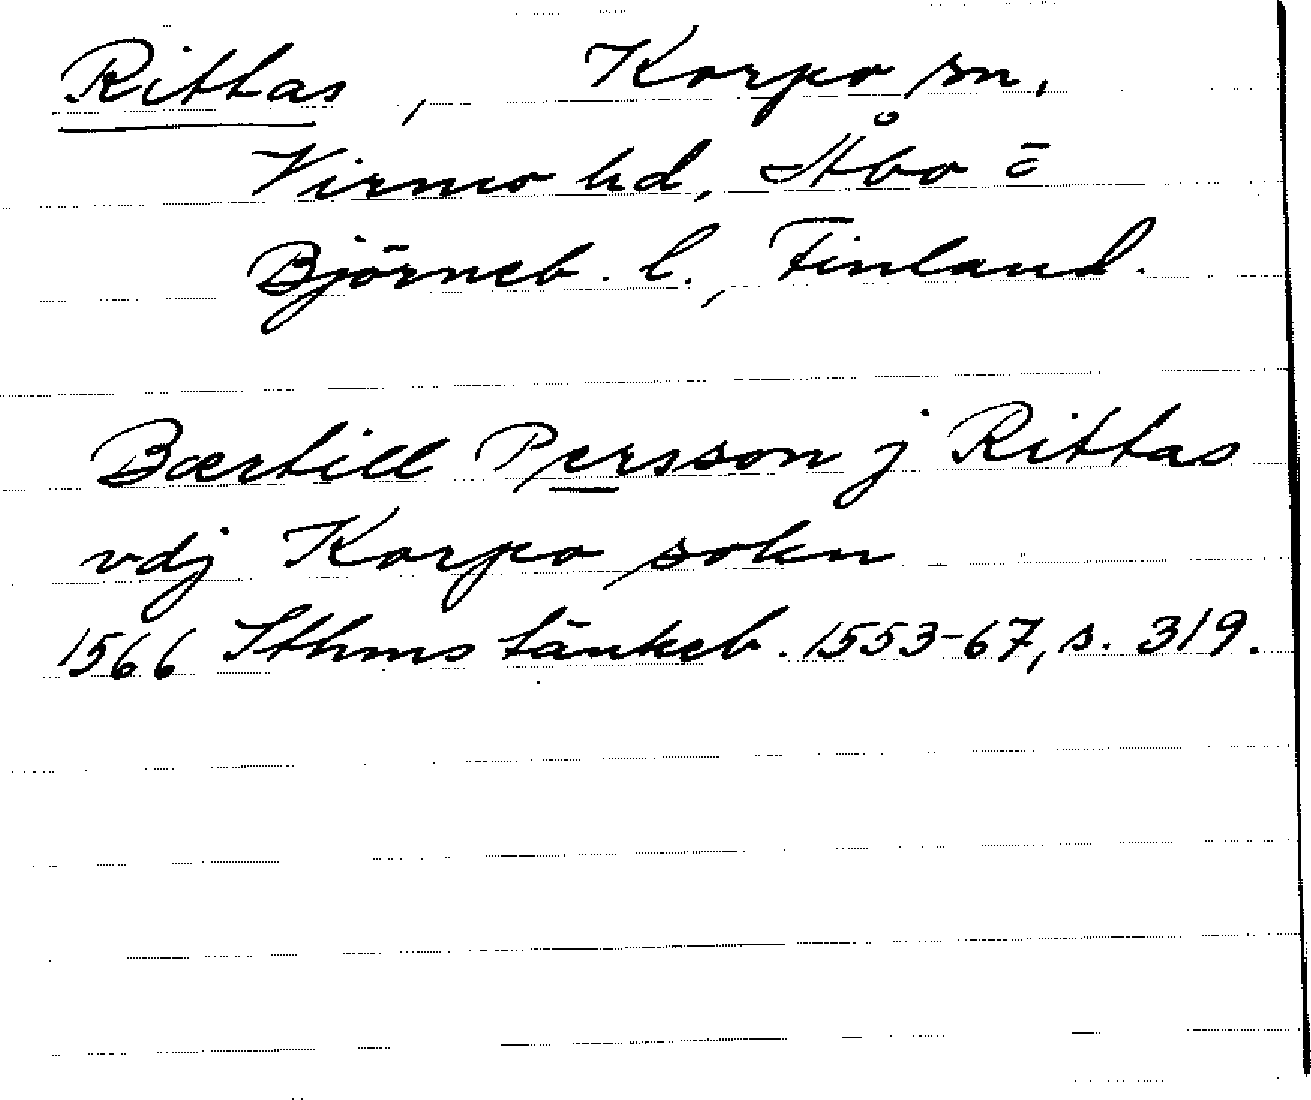 Rittas, Korpo sn,
Virmo hd, Åbo o
Björneb. l., Finland.
Bærtill Persson j Rittas
vdj Korpo sokn
1566 Sthms tänkeb. 1553-67, s. 319.